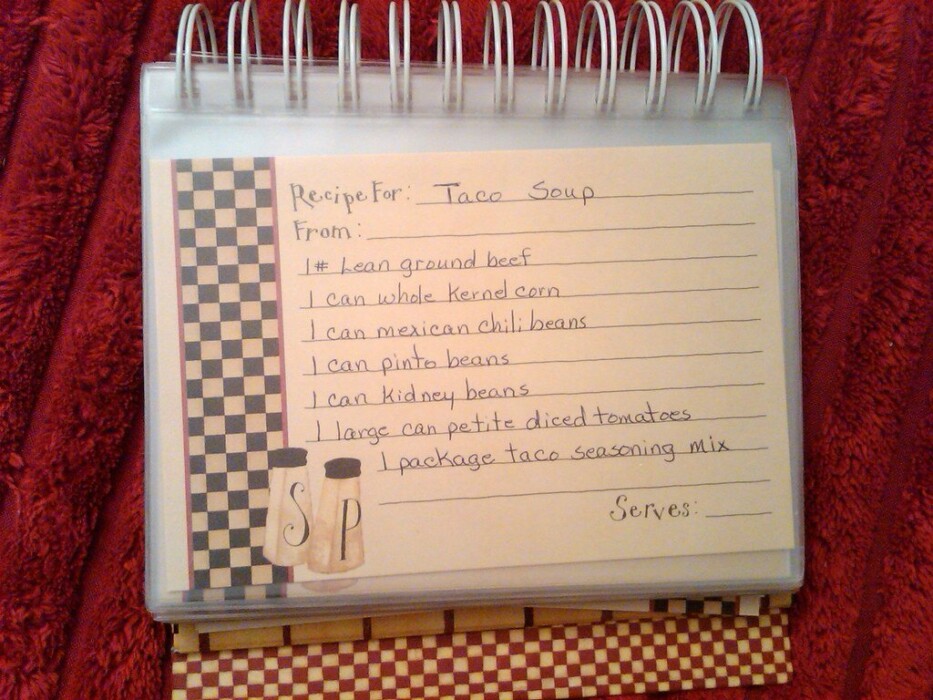 Recipe For: Taco Soup
From:
1# Lean ground beef
1 can whole kernel corn
1 can mexican chili beans
1 can pinto beans
1 can kidney beans
1 large can petite diced tomatoes
1 package taco seasoning mix
S P
Serves: